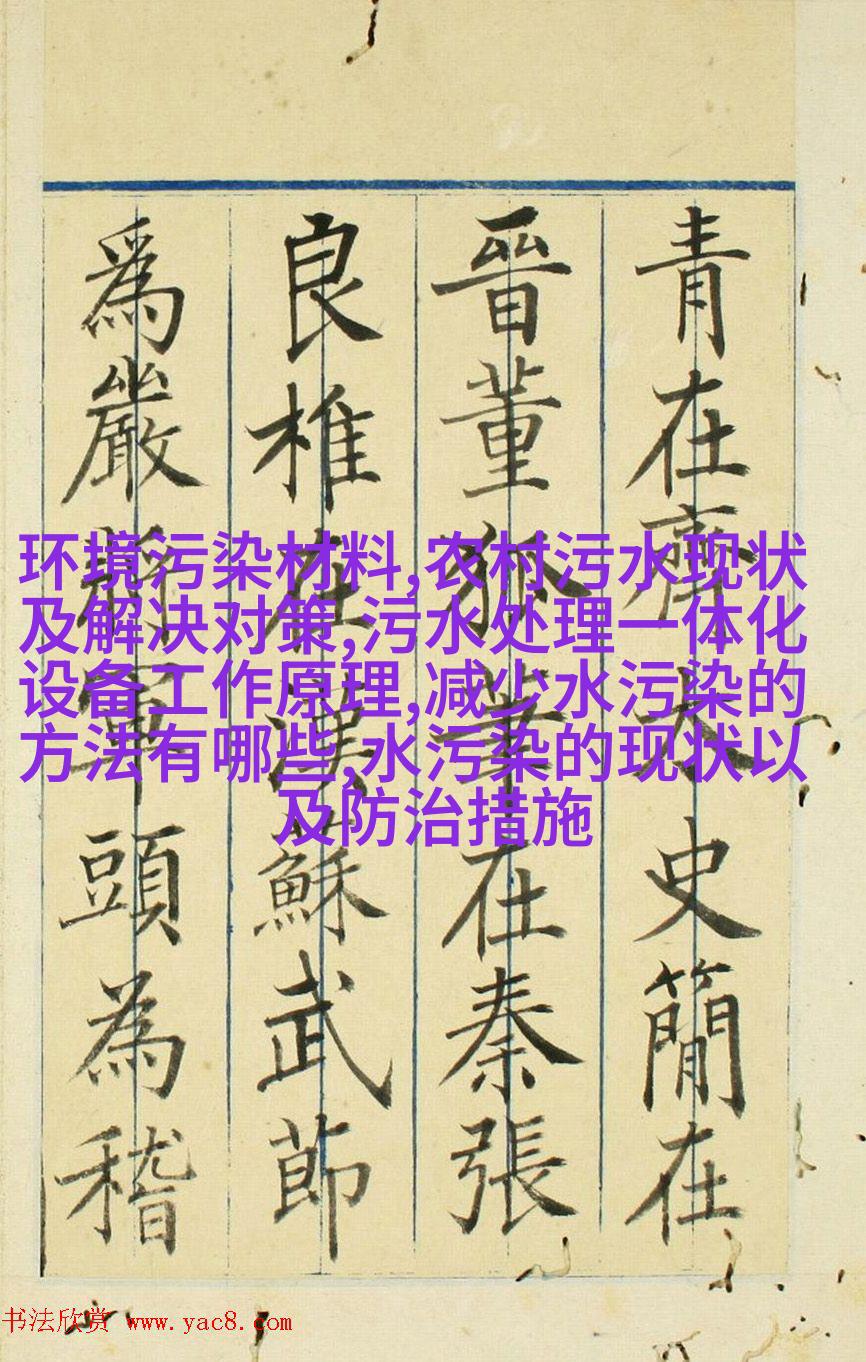 青在齊太史簡在
晉董狐筆在秦張
良椎在漢蘇武節
爲嚴將軍頭為稽
环境污染材料,农村污水现状
及解决对策,污水处理一体化
设备工作原理,减少水污染的
方法有哪些,水污染的现状以
及防治措施
书法欣赏 www.yac8.com